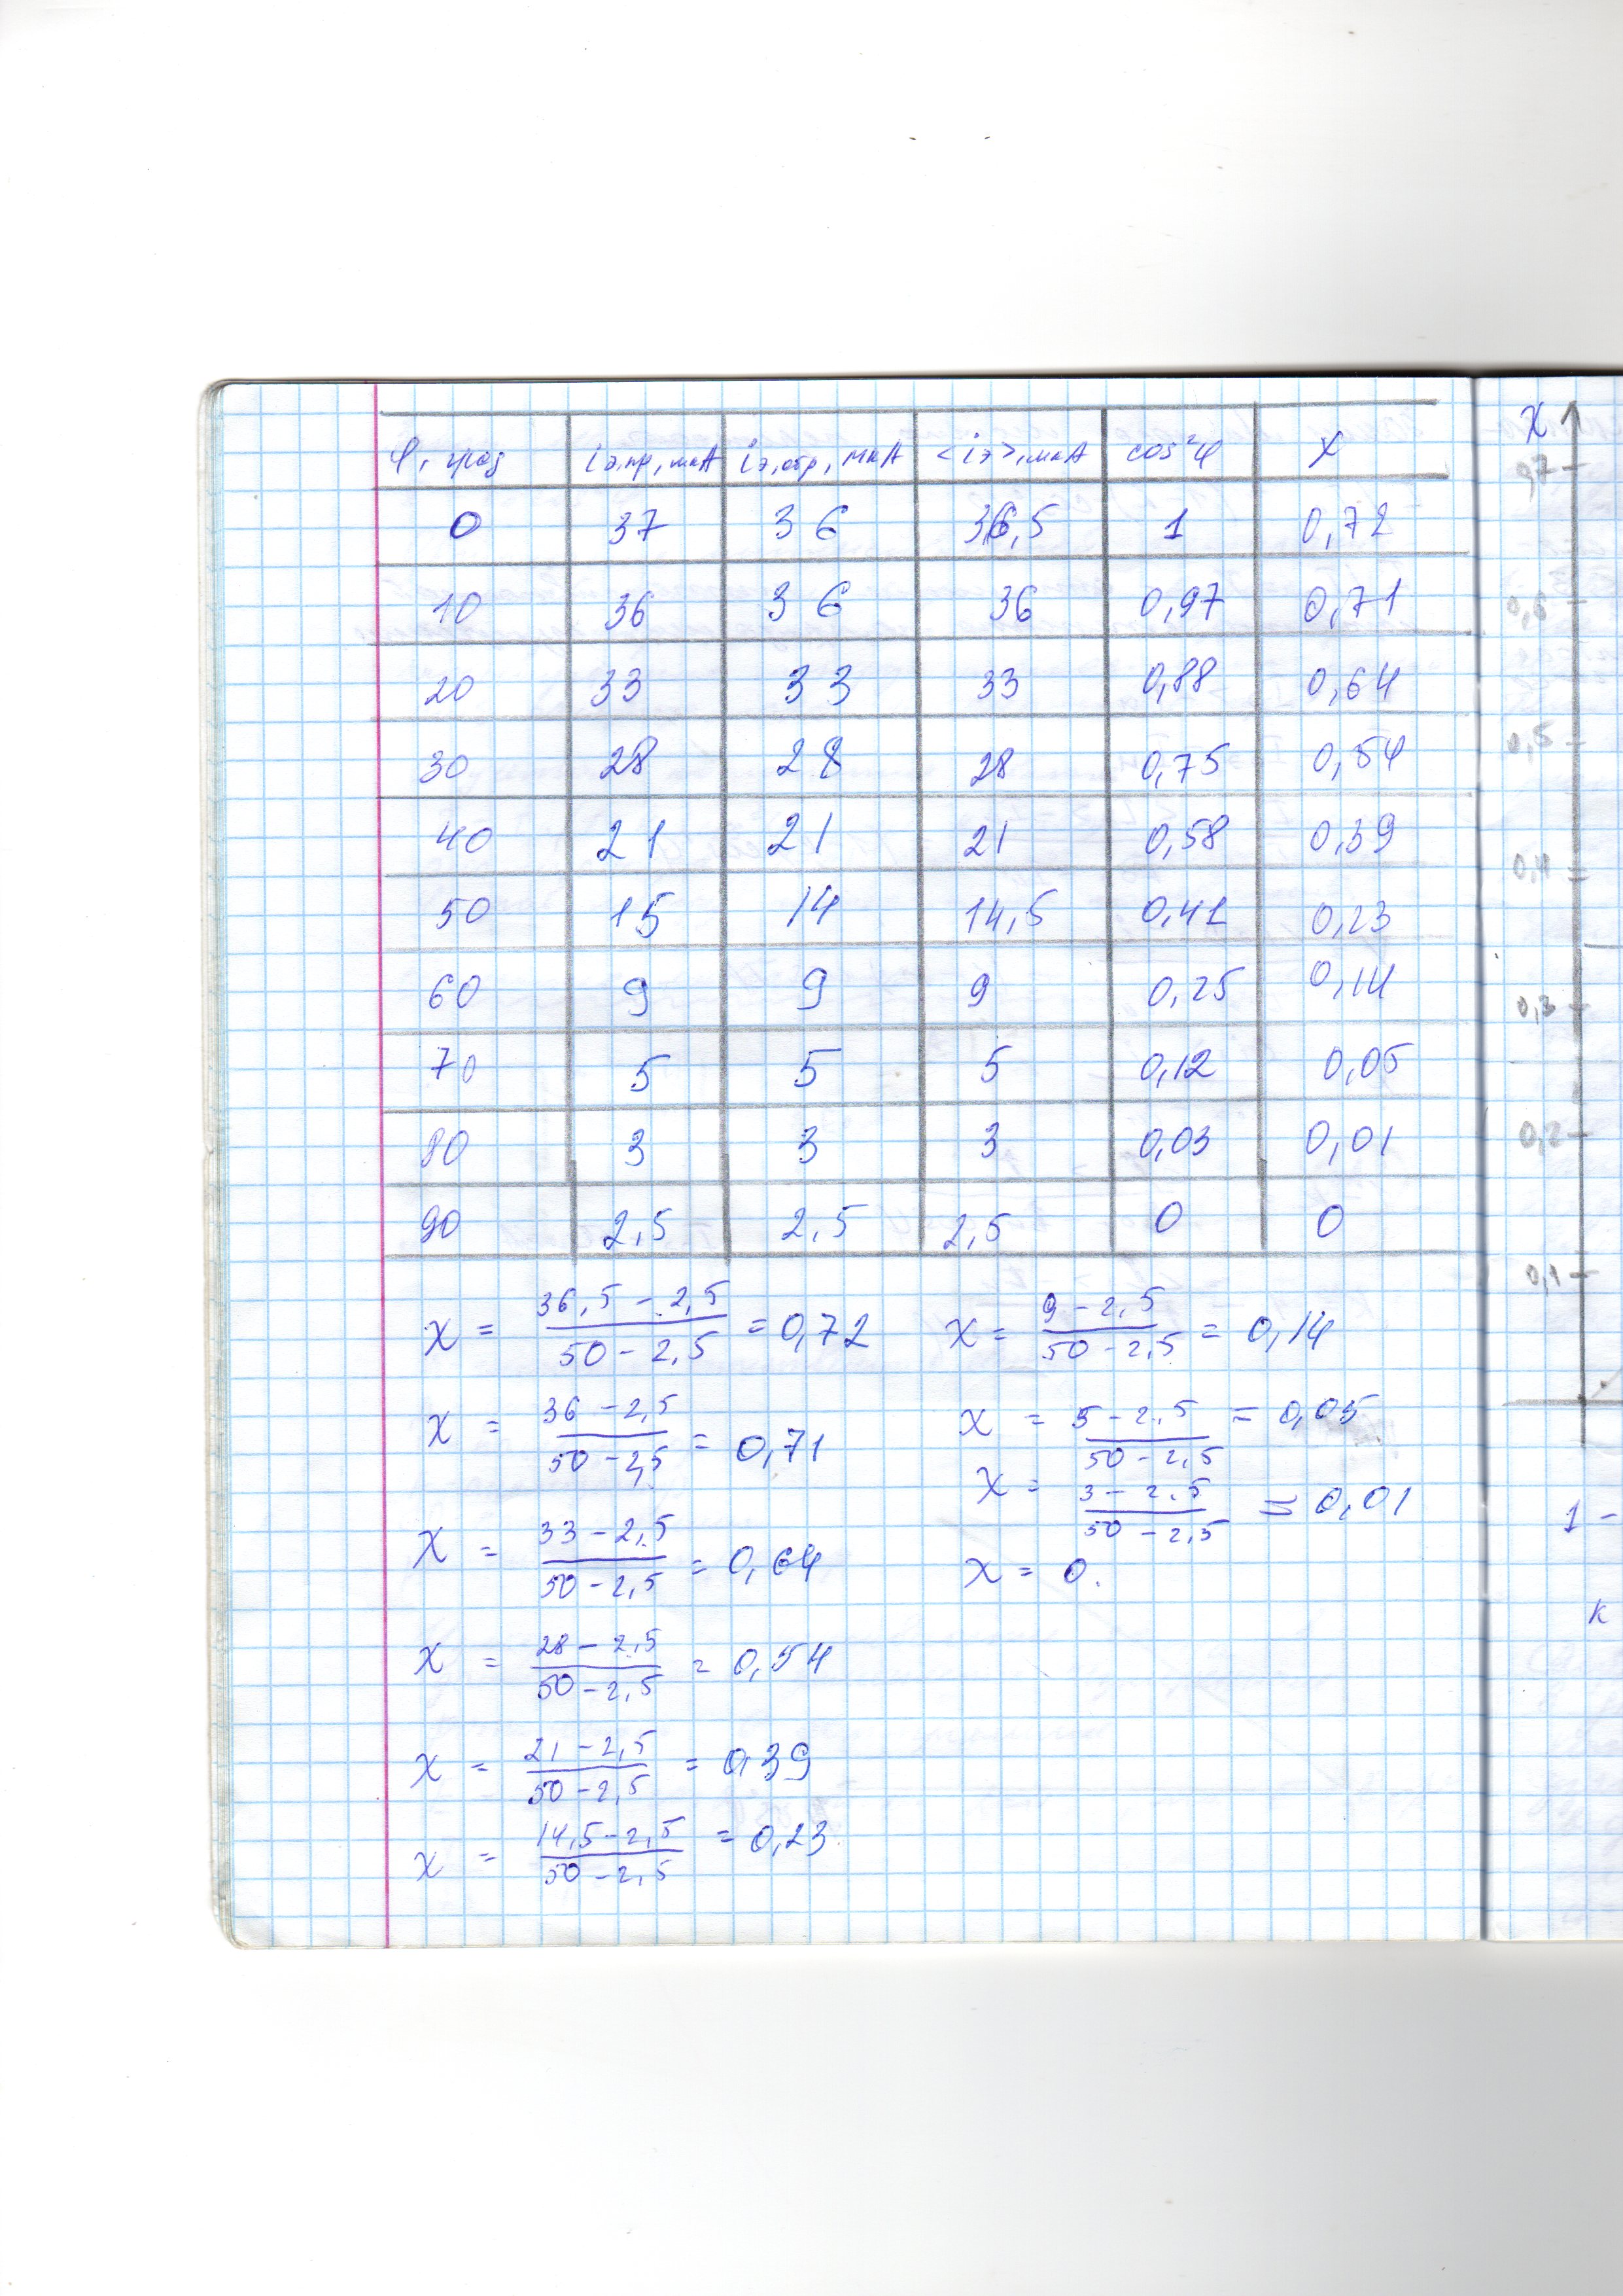 φ, град iэ,пр, мкА iэ,обр, мкА <iэ>, мкА cos²φ X
0 37 36 36,5 1 0,72
10 36 36 36 0,97 0,71
20 33 33 33 0,88 0,64
30 28 28 28 0,75 0,54
40 21 21 21 0,58 0,39
50 15 14 14,5 0,41 0,23
60 9 9 9 0,25 0,14
70 5 5 5 0,12 0,05
80 3 3 3 0,03 0,01
90 2,5 2,5 2,5 0 0
x = (36,5 - 2,5)/(50 - 2,5) = 0,72
x = (36 - 2,5)/(50 - 2,5) = 0,71
x = (33 - 2,5)/(50 - 2,5) = 0,64
x = (28 - 2,5)/(50 - 2,5) = 0,54
x = (21 - 2,5)/(50 - 2,5) = 0,39
x = (14,5 - 2,5)/(50 - 2,5) = 0,23
x = (9 - 2,5)/(50 - 2,5) = 0,14
x = (5 - 2,5)/(50 - 2,5) = 0,05
x = (3 - 2,5)/(50 - 2,5) = 0,01
x = 0.
X
0,7
0,6
0,5
0,4
0,3
0,2
0,1
1 -
к